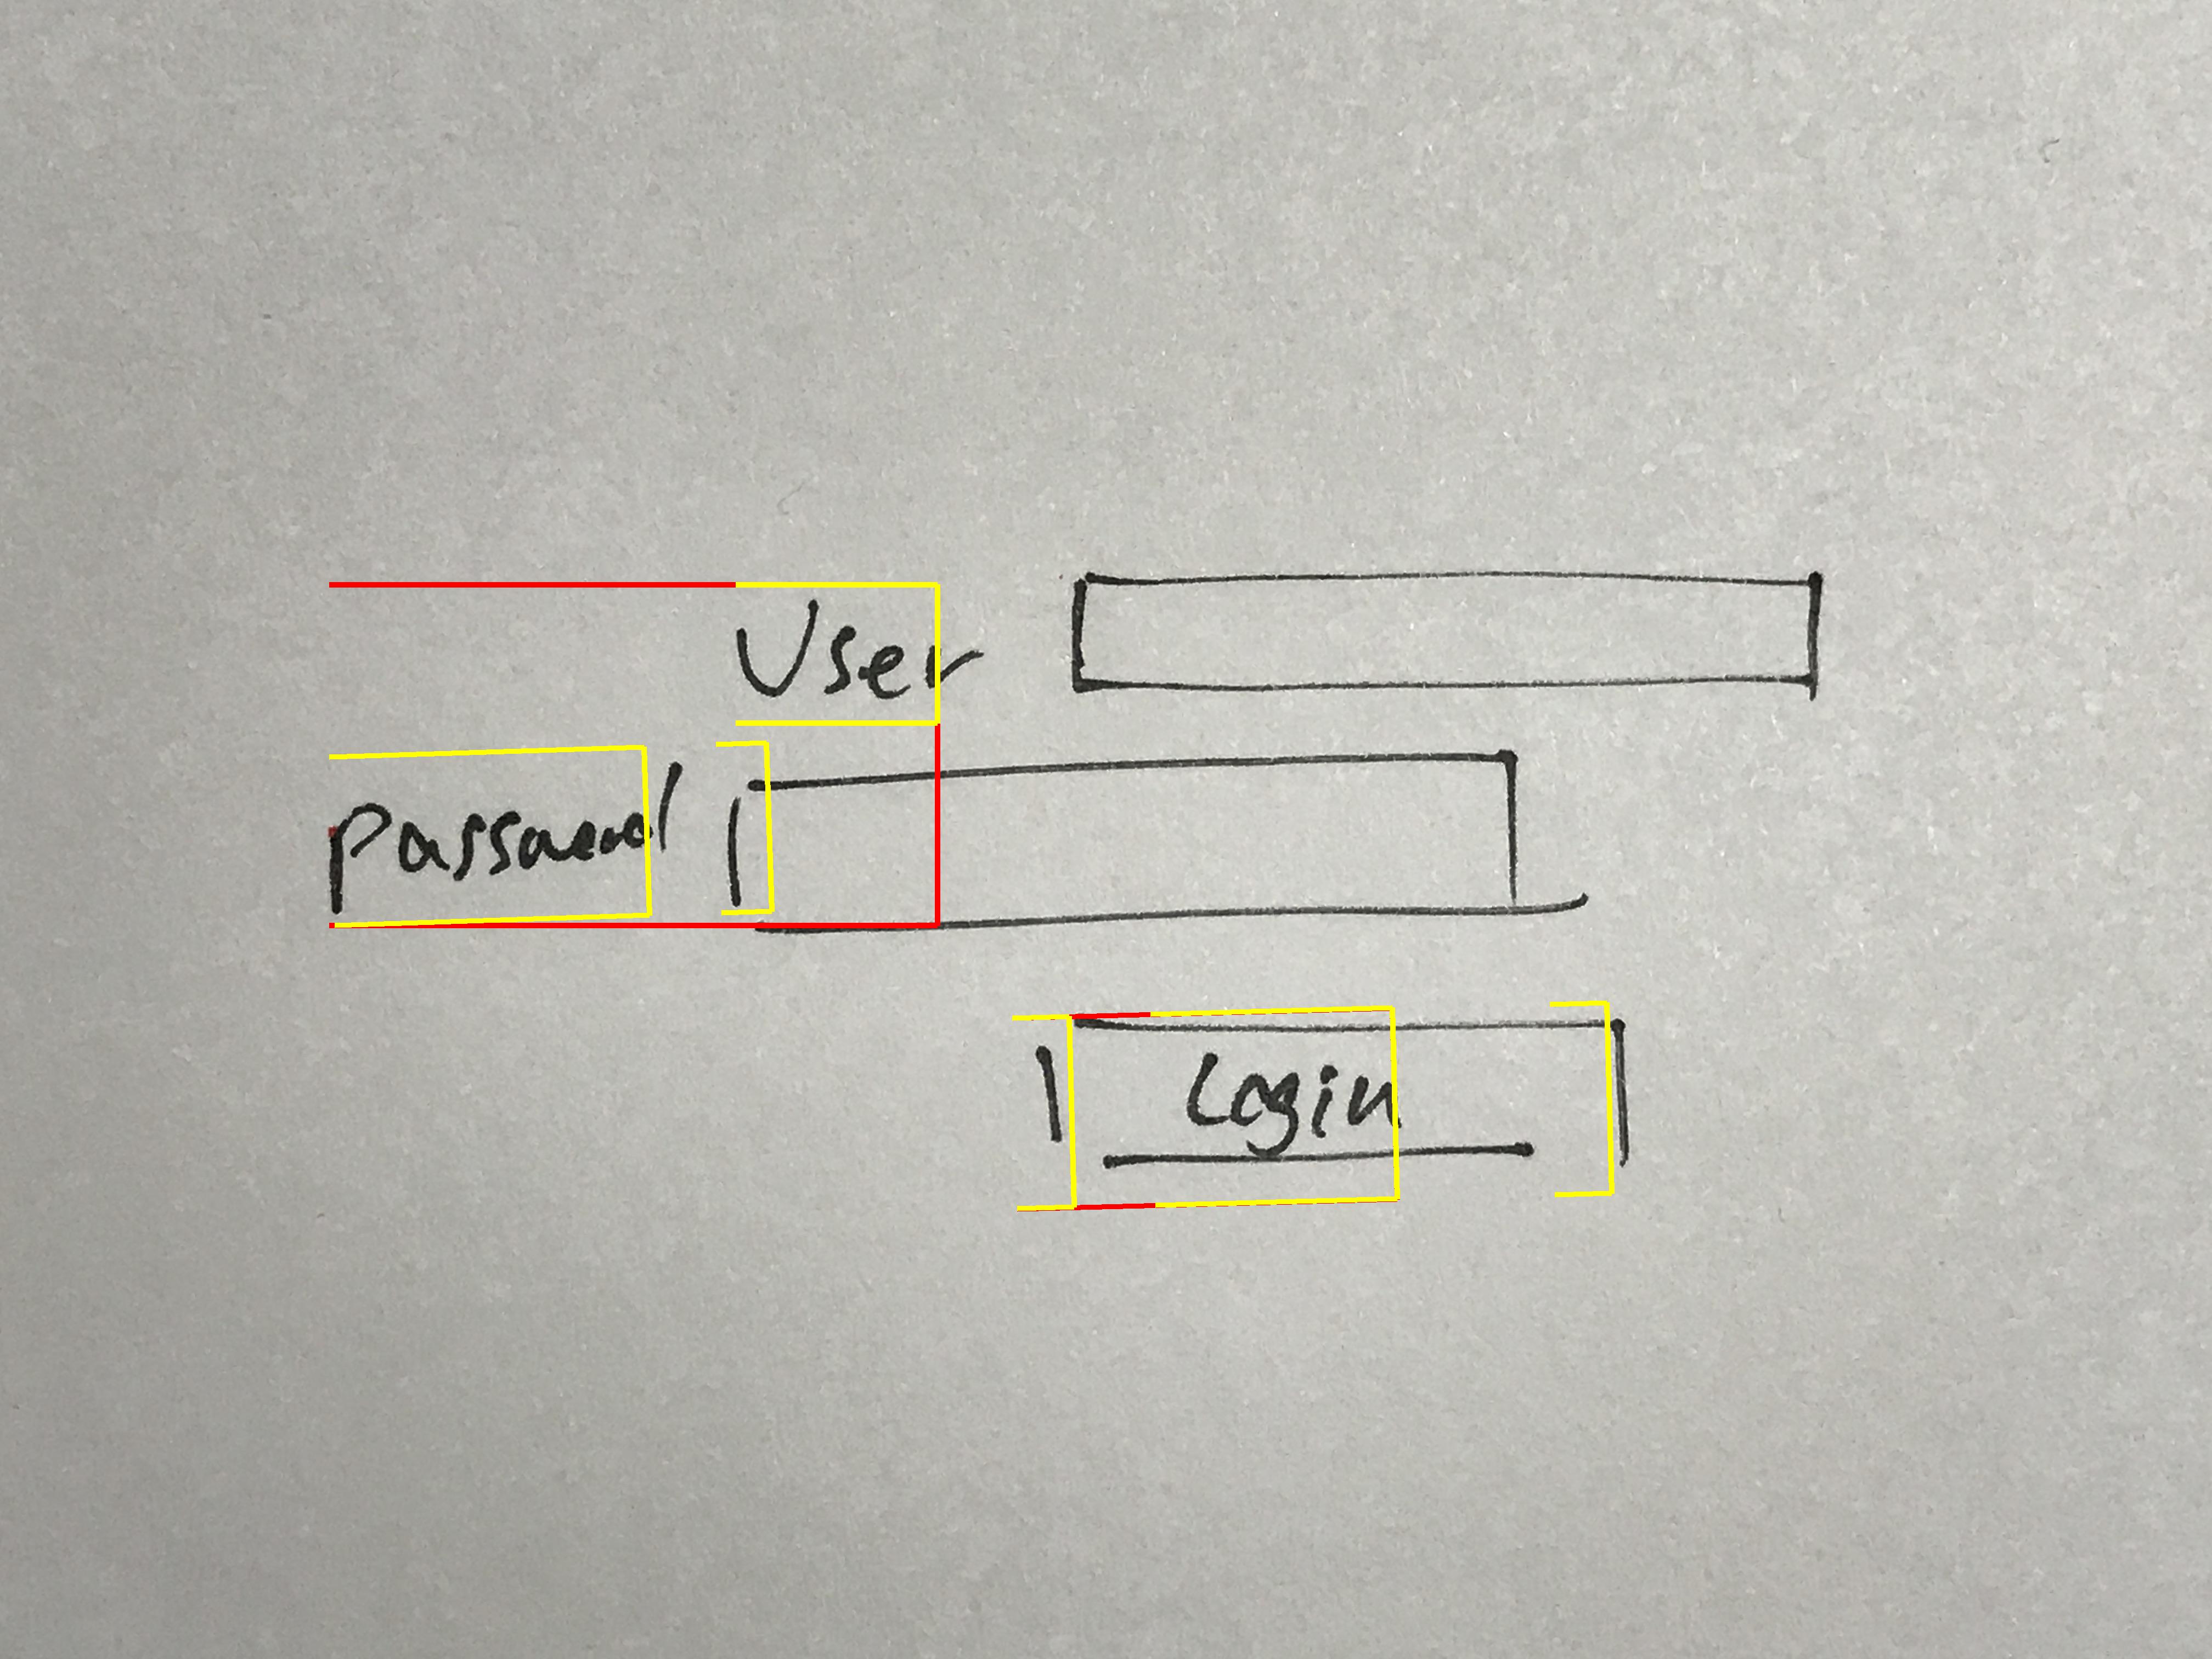 User
password
Login